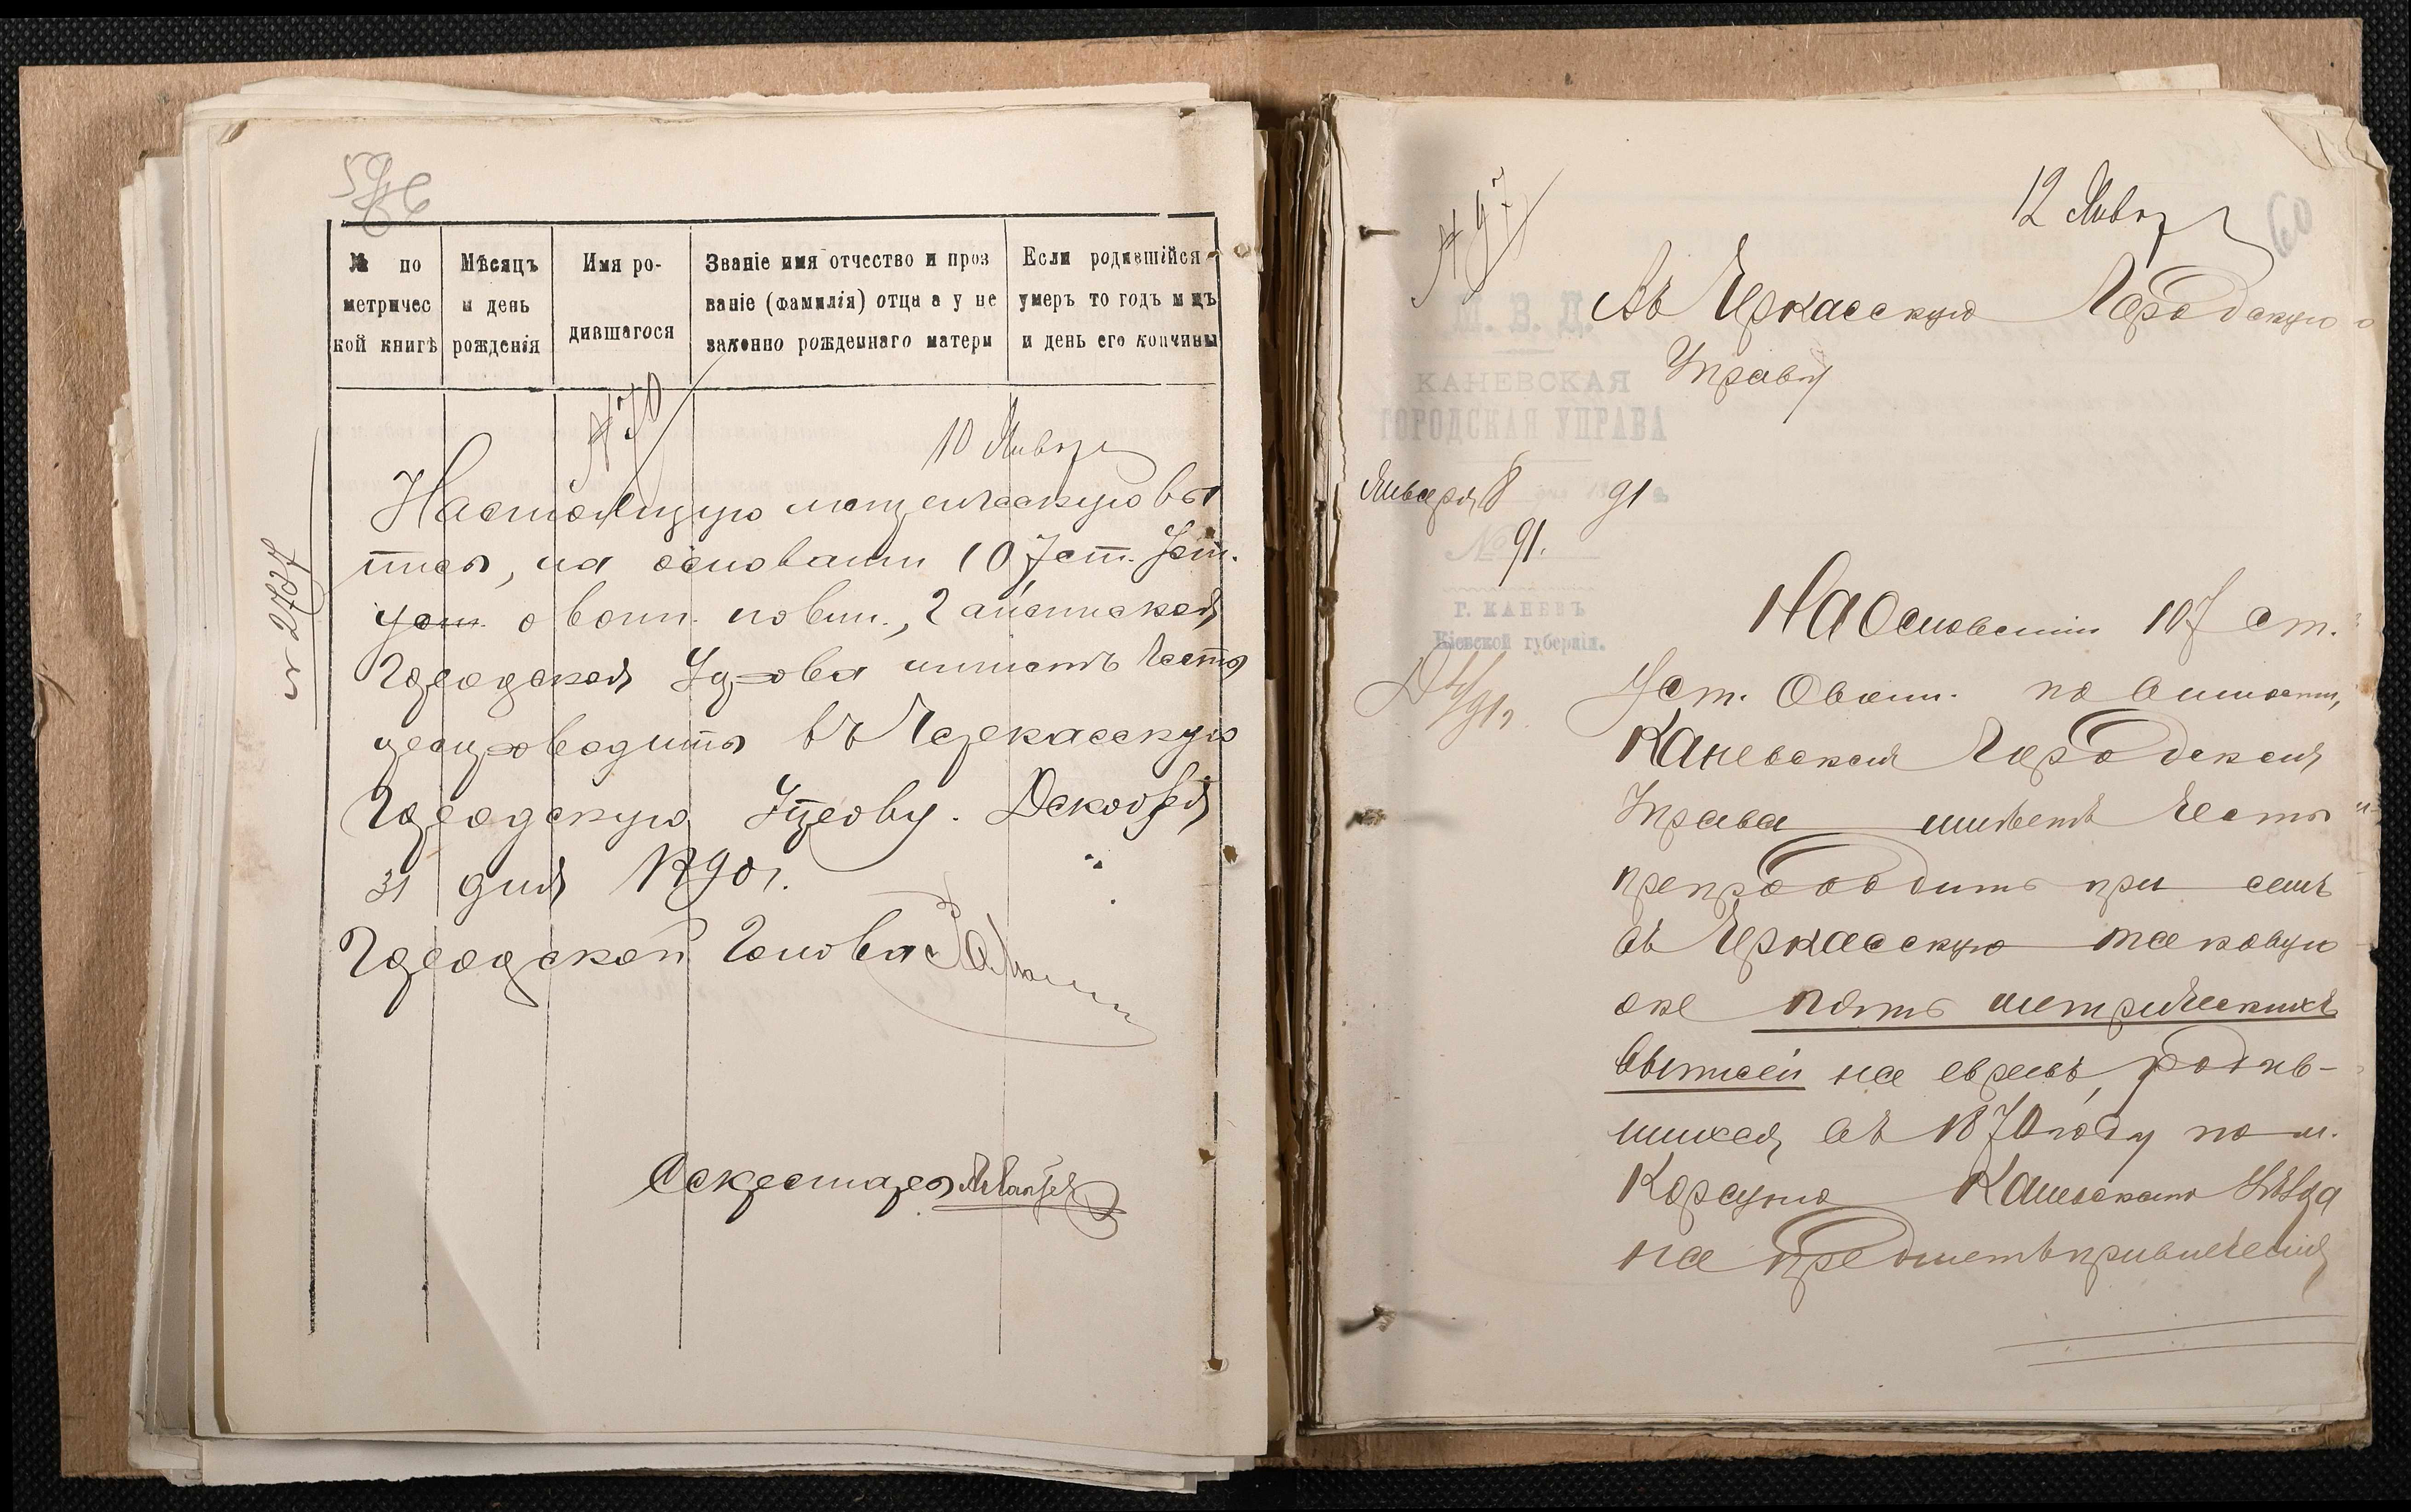 № по метричес кой книгѣ
Мѣсяцъ и день рожденія
Имя ро- дившагося
Званіе имя отчество и проз ваніе (фамилія) отца а у не законно рожденнаго матери
Если родившійся умеръ то годъ м цъ и день его кончины
№ 70
10 Января
Настоящую метрическую вы
пись, на основаніи 107 ст. Уст.
уст. о воин. повин., Гайсинская
Городская Управа имѣетъ честь
препроводить въ Черкасскую
Городскую Управу. Декабря
31 дня 1890 г.
Городской Голова
Секретарь
№ 2737
12 Января
60
№ 97
Въ Черкасскую Городскую
Управу
М. В. Д.
КАНЕВСКАЯ
ГОРОДСКАЯ УПРАВА
Января 8 дня 1891 г.
№ 91.
Г. КАНЕВЪ
Кіевской губерніи.
На Основаніи 107 ст.
Уст. О воин. повинности,
Каневская Городская
Управа имѣетъ честь
препроводить при семъ
въ Черкасскую таковую
же пять метрическихъ
выписей на евреевъ, родив-
шихся въ 1870 году по м.
Корсуню Каневскаго Уѣзда
на предметъ привлеченія